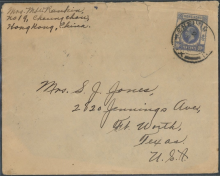 No 19, Cheung Chau,
Hongkong, China.
Mrs. S. J. Jones,
2820 Jennings Ave,
Ft Worth,
Texas
U.S.A